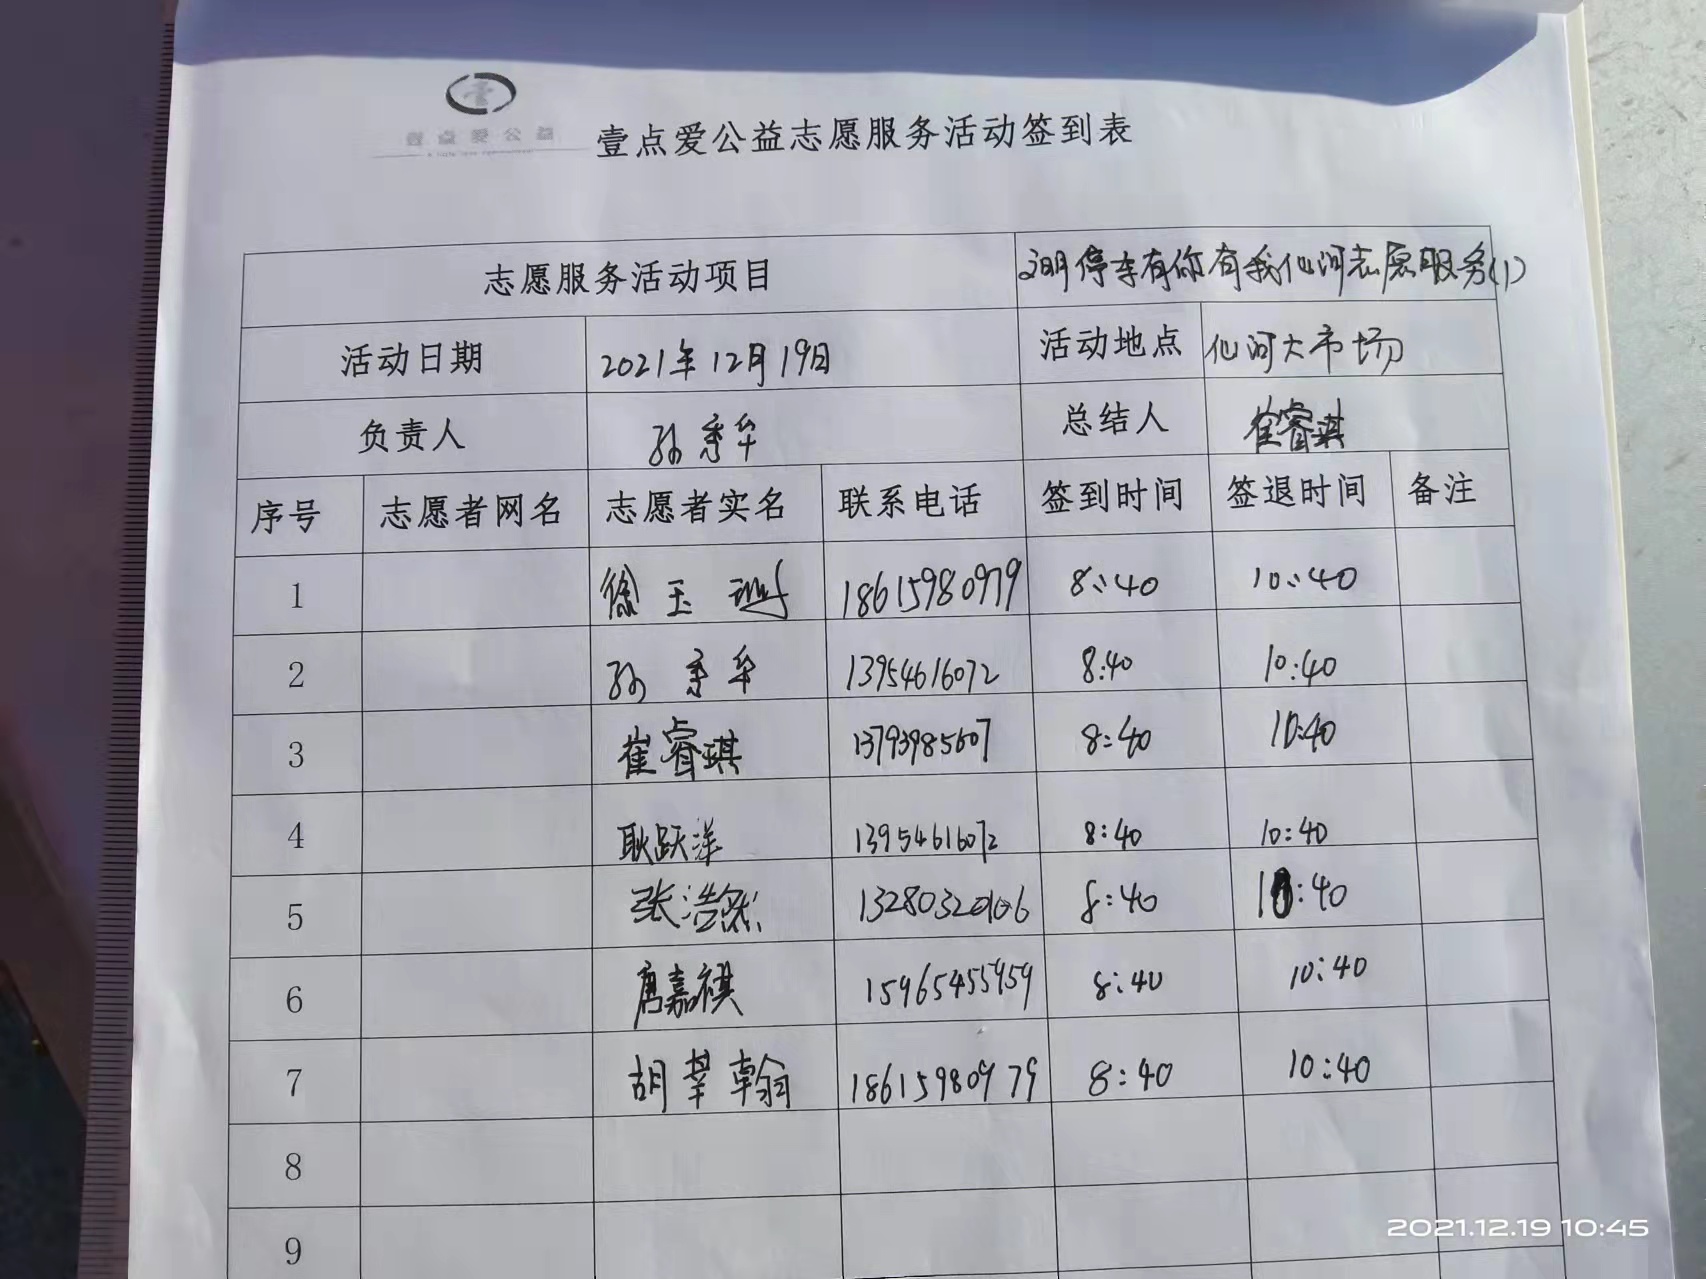 壹点爱公益
壹点爱公益志愿服务活动签到表
志愿服务活动项目 文明停车有你有我仙河志愿服务(1)
活动日期 2021年12月19日 活动地点 仙河大市场
负责人 孙秀华 总结人 崔睿琪
序号 志愿者网名 志愿者实名 联系电话 签到时间 签退时间 备注
1 徐玉 18615980979 8:40 10:40
2 孙秀华 13954616072 8:40 10:40
3 崔睿琪 13793985607 8:40 10:40
4 耿跃洋 13954616072 8:40 10:40
5 张浩然 8:40 10:40
6 唐嘉祺 15965455959 8:40 10:40
7 胡莘翰 18615980979 8:40 10:40
8
9
2021.12.19 10:45